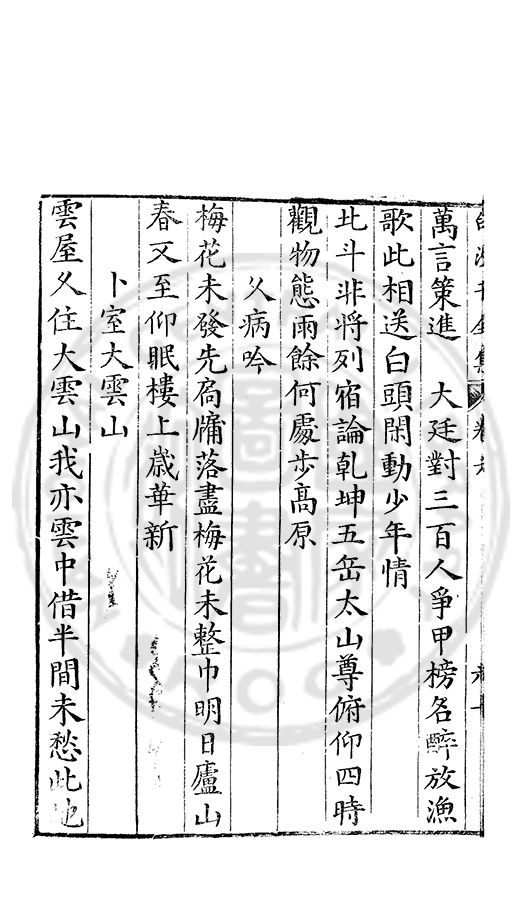 萬言策進　大廷對三百人爭甲榜名醉放漁
歌此相送白頭閑動少年情
北斗非將列宿論乾坤五岳太山尊俯仰四時
觀物態雨餘何處步高原
久病吟
梅花未發先扃牖落盡梅花未整巾明日廬山
春又至仰眠樓上歲華新
卜室大雲山
雲屋久住大雲山我亦雲中借半間未愁此地